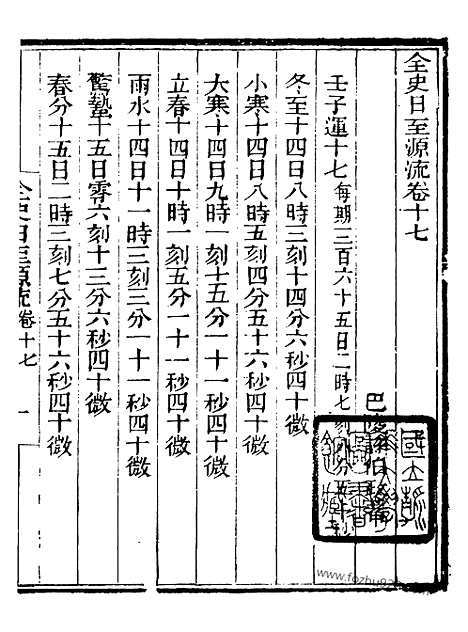 全史日至源流卷十七
巴陵
壬子運十七每期三百六十五日二時七刻
冬至十四日八時三刻十四分五十六秒四十微
小寒十四日八時五刻四分五十六秒四十微
大寒十四日九時一刻十五分一十一秒四十微
立春十四日十時一刻五分一十一秒四十微
雨水十四日十一時三刻三分一十一秒四十微
驚蟄十五日零六刻十三分六秒四十微
春分十五日二時三刻七分五十六秒四十微
全史日至源流卷十七
一